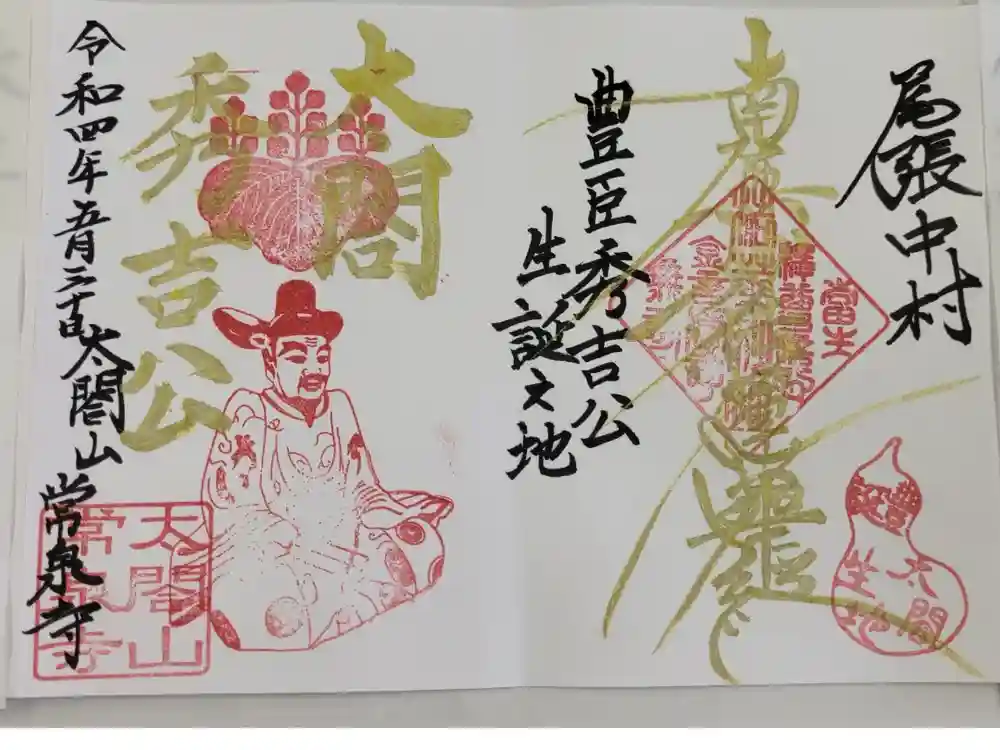 尾張中村
南無妙法蓮華経
豊臣秀吉公
生誕之地
豊太閤
生誕地
太閤
秀吉公
令和四年五月三十日
太閤山
常泉寺
太閤山
常泉寺